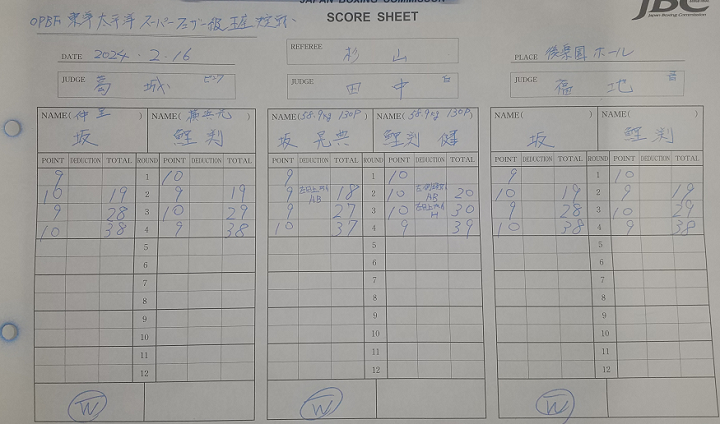 JAPAN BOXING COMMISSION
SCORE SHEET
JBC
Japan Boxing Commission
OPBF 東洋太平洋 スーパーフェザー級 王座決定戦
DATE 2024.2.16
REFEREE 杉山
PLACE 後楽園ホール
JUDGE 葛城 ピンク
JUDGE 田中 白
JUDGE 福地
NAME(仲里) NAME( ) NAME(58.9kg 130P) NAME(58.9kg 130P) NAME( ) NAME( )
坂 鯉渕 坂 晃典 鯉渕 健 坂 鯉渕
POINT DEDUCTION TOTAL ROUND POINT DEDUCTION TOTAL POINT DEDUCTION TOTAL ROUND POINT DEDUCTION TOTAL POINT DEDUCTION TOTAL ROUND POINT DEDUCTION TOTAL
9 1 10 9 1 10 9 1 10
10 19 2 9 19 9 AB 18 2 10 AB 20 10 19 2 9 19
9 28 3 10 29 9 27 3 10 H 30 9 28 3 10 29
10 38 4 9 38 10 37 4 9 39 10 38 4 9 38
5 5 5
6 6 6
7 7 7
8 8 8
9 9 9
10 10 10
11 11 11
12 12 12
W W W